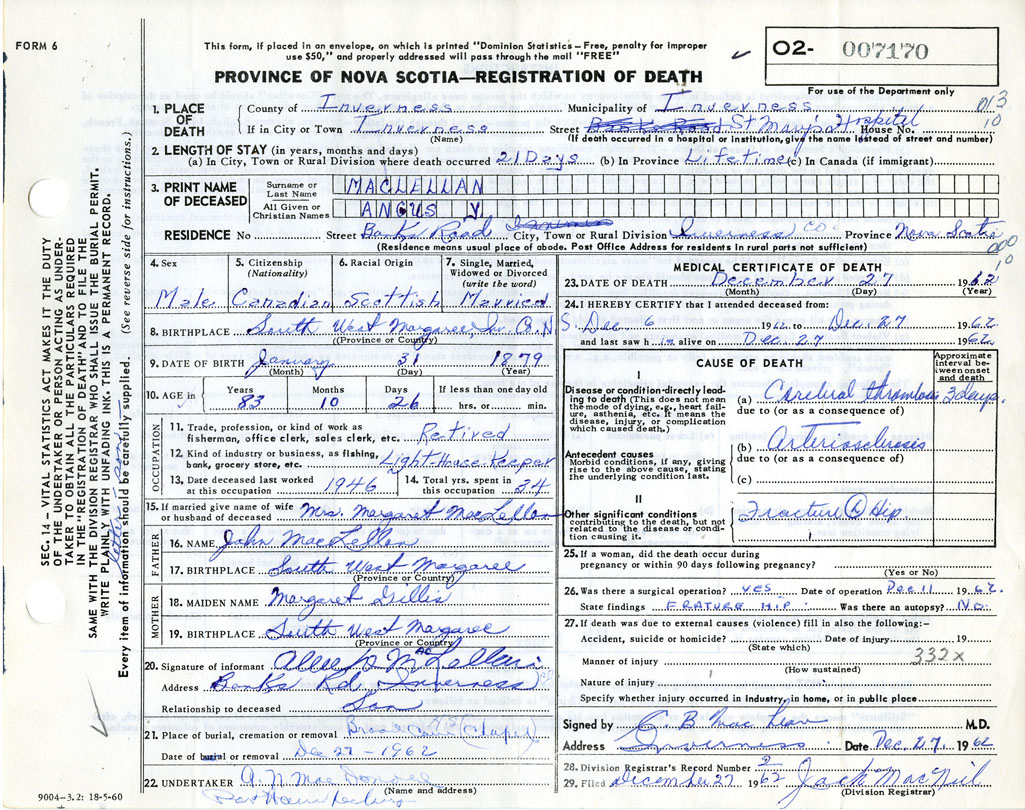 FORM 6
This form, if placed in an envelope, on which is printed "Dominion Statistics – Free, penalty for improper
use $50," and properly addressed will pass through the mail "FREE"
PROVINCE OF NOVA SCOTIA—REGISTRATION OF DEATH
O2- 007170
For use of the Department only
013
10
1. PLACE OF DEATH
County of Inverness Municipality of Inverness
If in City or Town Inverness Street Banks Road St Mary's Hospital House No.
(Name) (If death occurred in a hospital or institution, give the name instead of street and number)
2. LENGTH OF STAY (in years, months and days)
(a) In City, Town or Rural Division where death occurred 21 Days (b) In Province Lifetime (c) In Canada (if immigrant)
3. PRINT NAME OF DECEASED
Surname or Last Name MACLELLAN
All Given or Christian Names ANGUS Y
RESIDENCE No Street Banks Road City, Town or Rural Division Inverness CO Province Nova Scotia
(Residence means usual place of abode. Post Office Address for residents in rural parts not sufficient)
000
10
4. Sex Male
5. Citizenship (Nationality) Canadian
6. Racial Origin Scottish
7. Single, Married, Widowed or Divorced (write the word) Married
8. BIRTHPLACE South West Margaree, Inv. Co. N.S.
(Province or Country)
9. DATE OF BIRTH January 31 1879
(Month) (Day) (Year)
10. AGE in Years 83 Months 10 Days 26 If less than one day old hrs. or min.
OCCUPATION
11. Trade, profession, or kind of work as fisherman, office clerk, sales clerk, etc. Retired
12. Kind of industry or business, as fishing, bank, grocery store, etc. Light-House Keeper
13. Date deceased last worked at this occupation 1946
14. Total yrs. spent in this occupation 34
15. If married give name of wife or husband of deceased Mrs. Margaret MacLellan
FATHER
16. NAME John MacLellan
17. BIRTHPLACE South West Margaree
(Province or Country)
MOTHER
18. MAIDEN NAME Margaret Gillis
19. BIRTHPLACE South West Margaree
(Province or Country)
20. Signature of informant MacLellan
Address Banks Rd. Inverness
Relationship to deceased Son
21. Place of burial, cremation or removal
Date of burial or removal Dec 27 - 1962
22. UNDERTAKER A. N. MacDonell
(Name and address)
9004-3.2: 18-5-60
MEDICAL CERTIFICATE OF DEATH
23. DATE OF DEATH December 27 1962
(Month) (Day) (Year)
24. I HEREBY CERTIFY that I attended deceased from:
Dec 6 1962 to Dec. 27 1962
and last saw him alive on Dec. 27 1962
CAUSE OF DEATH
Approximate interval between onset and death
I
Disease or condition directly leading to death (This does not mean the mode of dying, e.g., heart failure, asthenia, etc. It means the disease, injury, or complication which caused death.)
(a) Cerebral thrombosis 3 days
due to (or as a consequence of)
Antecedent causes
Morbid conditions, if any, giving rise to the above cause, stating the underlying condition last.
(b) Arteriosclerosis
due to (or as a consequence of)
(c)
II
Other significant conditions
contributing to the death, but not related to the disease or condition causing it.
Fracture Hip
25. If a woman, did the death occur during
pregnancy or within 90 days following pregnancy?
(Yes or No)
26. Was there a surgical operation? yes Date of operation Dec 11 1962
State findings FRATURE HIP Was there an autopsy? No.
27. If death was due to external causes (violence) fill in also the following:–
Accident, suicide or homicide? Date of injury 19
(State which)
332x
Manner of injury
(How sustained)
Nature of injury
Specify whether injury occurred in industry, in home, or in public place
Signed by C. B. MacLean M.D.
Address Inverness Date Dec. 27, 1962
28. Division Registrar's Record Number 2
29. Filed December 27 1962 Jack MacNeil
(Division Registrar)
SEC. 14 – VITAL STATISTICS ACT MAKES IT THE DUTY
OF THE UNDERTAKER OR PERSON ACTING AS UNDER-
TAKER TO OBTAIN ALL THE PARTICULARS REQUIRED
IN THE "REGISTRATION OF DEATH" AND TO FILE THE
SAME WITH THE DIVISION REGISTRAR WHO SHALL ISSUE THE BURIAL PERMIT.
WRITE PLAINLY WITH UNFADING INK. THIS IS A PERMANENT RECORD.
Every item of information should be carefully supplied. (See reverse side for instructions.)